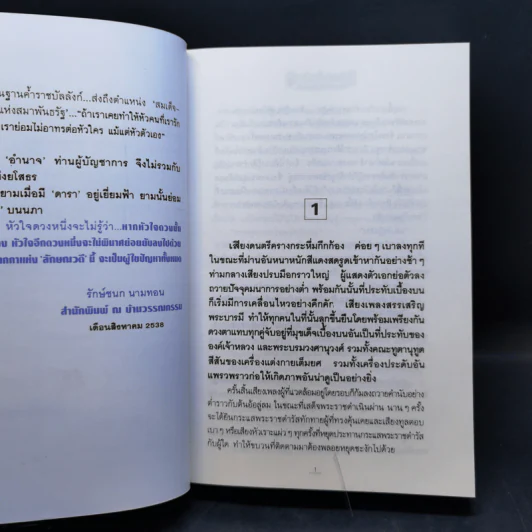 นฐานค้ำราชบัลลังก์...ส่งถึงตำแหน่ง 'สมเด็จ-
แห่งสมาพันธรัฐ'...“ถ้าเราเคยทำให้หัวคนที่เรารัก
เราย่อมไม่อาทรต่อหัวใคร แม้แต่หัวตัวเอง”
'อำนาจ' ท่านผู้บัญชาการ จึงไม่รวมกับ
ยามเมื่อมี 'ดารา' อยู่เยี่ยมฟ้า ยามนั้นย่อม
บนนภา
หัวใจดวงหนึ่งจะไม่รู้ว่า...หากหัวใจดวงนั้น
หัวใจอีกดวงหนึ่งจะไม่พินาศย่อยยับลงไปด้วย
'ลักษณวดี' นี้ จะเป็นผู้ไขปัญหาทั้งหมด
รักษ์ชนก นามทอน
สำนักพิมพ์ ณ บ้านวรรณกรรม
เดือนสิงหาคม 2538
1
เสียงดนตรีครางกระหึ่มกึกก้อง ค่อย ๆ เบาลงทุกที
ในขณะที่ม่านอันหนาหนักสีแดงสดรูดเข้าหากันอย่างช้า ๆ
ท่ามกลางเสียงปรบมือกราวใหญ่ ผู้แสดงตัวเอกย่อตัวลง
ถวายบังคุมนาการอย่างต่ำ พร้อมกันนั้นที่ประทับเบื้องบน
ก็เริ่มมีการเคลื่อนไหวอย่างคึกคัก เสียงเพลงสรรเสริญ
พระบารมี ทำให้ทุกคนในที่นั้นลุกขึ้นยืนโดยพร้อมเพรียงกัน
ดวงตาแทบทุกคู่จับอยู่ที่มุขเด็จเบื้องบนอันเป็นที่ประทับของ
องค์เจ้าหลวง และพระบรมวงศานุวงศ์ รวมทั้งคณะทูตานุทูต
สีสันของเครื่องแต่งกายเต็มยศ รวมทั้งเครื่องประดับอัน
แพรวพราวก่อให้เกิดภาพอันน่าดูเป็นอย่างยิ่ง
ครั้นสิ้นเสียงเพลงผู้ที่แวดล้อมอยู่โดยรอบก็ก้มลงถวายคำนับอย่าง
ต่ำราวกับต้นอ้อลู่ลม ในขณะที่เสด็จพระราชดำเนินผ่าน นาน ๆ ครั้ง
จะได้ยินกระแสพระราชดำรัสทักทายผู้ที่ทรงคุ้นเคยและเสียงทูลตอบ
เบา ๆ หรือเสียงหัวเราะแผ่ว ๆ ทุกครั้งที่หยุดประทานกระแสพระราชดำรัส
กับผู้ใด ทำให้ขบวนที่ติดตามมาต้องพลอยหยุดชะงักไปด้วย
1